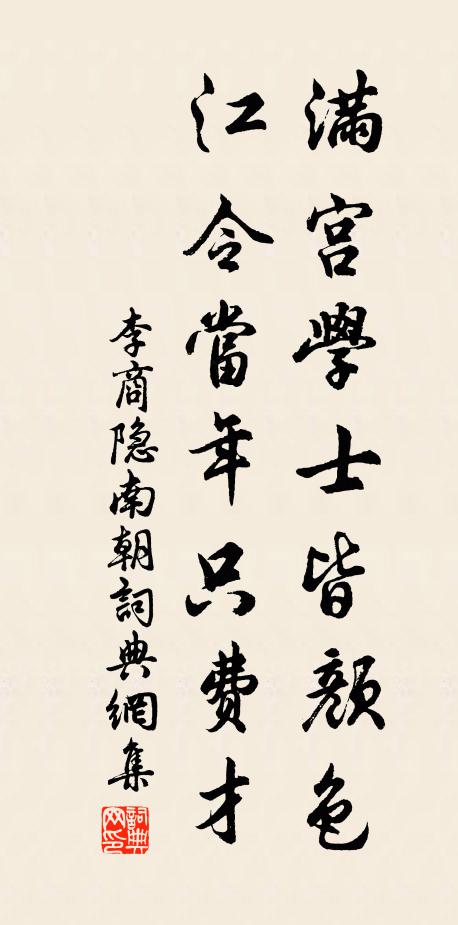 滿宮學士皆顏色
江令當年只費才
李商隐南朝詞典網集
詞典网印